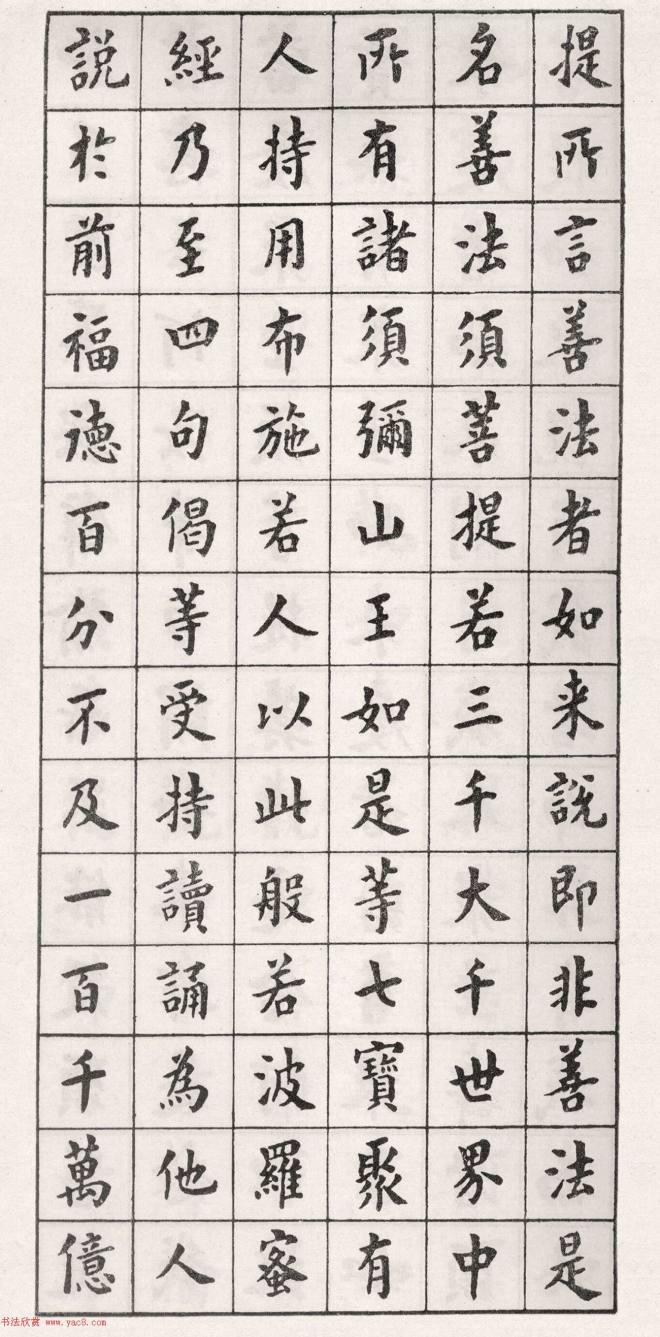 提所言善法者如来說即非善法是
名善法須菩提若三千大千世界中
所有諸須彌山王如是等七寶聚有
人持用布施若人以此般若波羅蜜
經乃至四句偈等受持讀誦為他人
説於前福德百分不及一百千萬億
书法欣赏 www.yac8.com